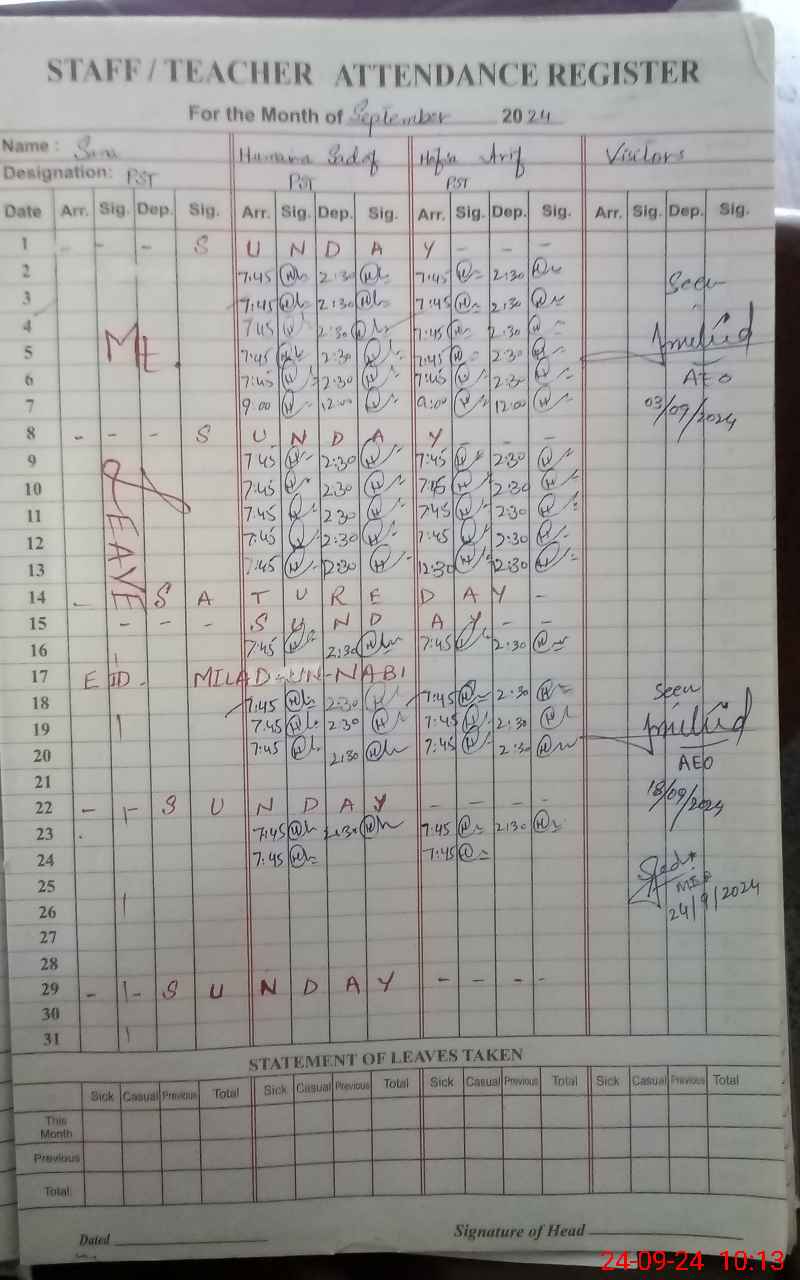 STAFF / TEACHER ATTENDANCE REGISTER
For the Month of September 2024
Name : Humaira Sadaf Arif Visitors
Designation: PST PST PST
Date Arr. Sig. Dep. Sig. Arr. Sig. Dep. Sig. Arr. Sig. Dep. Sig. Arr. Sig. Dep. Sig.
1 - - - S U N D A Y - - -
2 7:45 2:30 7:45 2:30 Seen
3 7:45 2:30 7:45 2:30
4 7:45 2:30 7:45 2:30
5 7:45 2:30 7:45 2:30
6 7:45 2:30 7:45 2:30 AEO
7 9:00 12:00 9:00 12:00 03/09/2024
8 - - - S U N D A Y - -
9 7:45 2:30 7:45 2:30
10 7:45 2:30 7:45 2:30
11 7:45 2:30 7:45 2:30
12 7:45 2:30 7:45 2:30
13 7:45 12:30 12:30 12:30
LEAVE
14 - S A T U R E D A Y -
15 - - - S U N D A Y - -
16 7:45 2:30 7:45 2:30
17 E ID - MILAD-UN-NABI
18 7:45 2:30 7:45 2:30 seen
19 7:45 2:30 7:45 2:30
20 7:45 2:30 7:45 2:30 AEO
21
22 - - S U N D A Y - - - - 18/09/2024
23 7:45 2:30 7:45 2:30
24 7:45 7:45
25
26 24/9/2024
27
28
29 - - S U N D A Y - - - -
30
31
STATEMENT OF LEAVES TAKEN
Sick Casual Previous Total Sick Casual Previous Total Sick Casual Previous Total Sick Casual Previous Total
This Month
Previous
Total
Dated Signature of Head
24-09-24 10:13